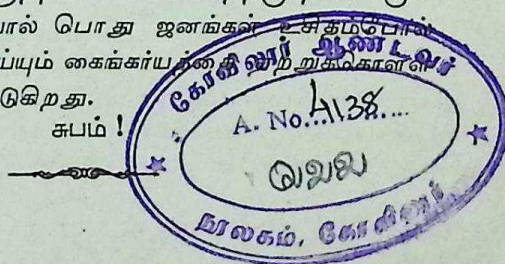 ால் பொது ஜனங்கள் உசிதம்போல்
ய்யும் கைங்கர்யத்தை ஏற்றுக்கொள்ள
டுகிறது.
சுபம் !
கோவிலூர் ஆண்டவர்
A. No. 4138
நூலகம், கோவிலூர்